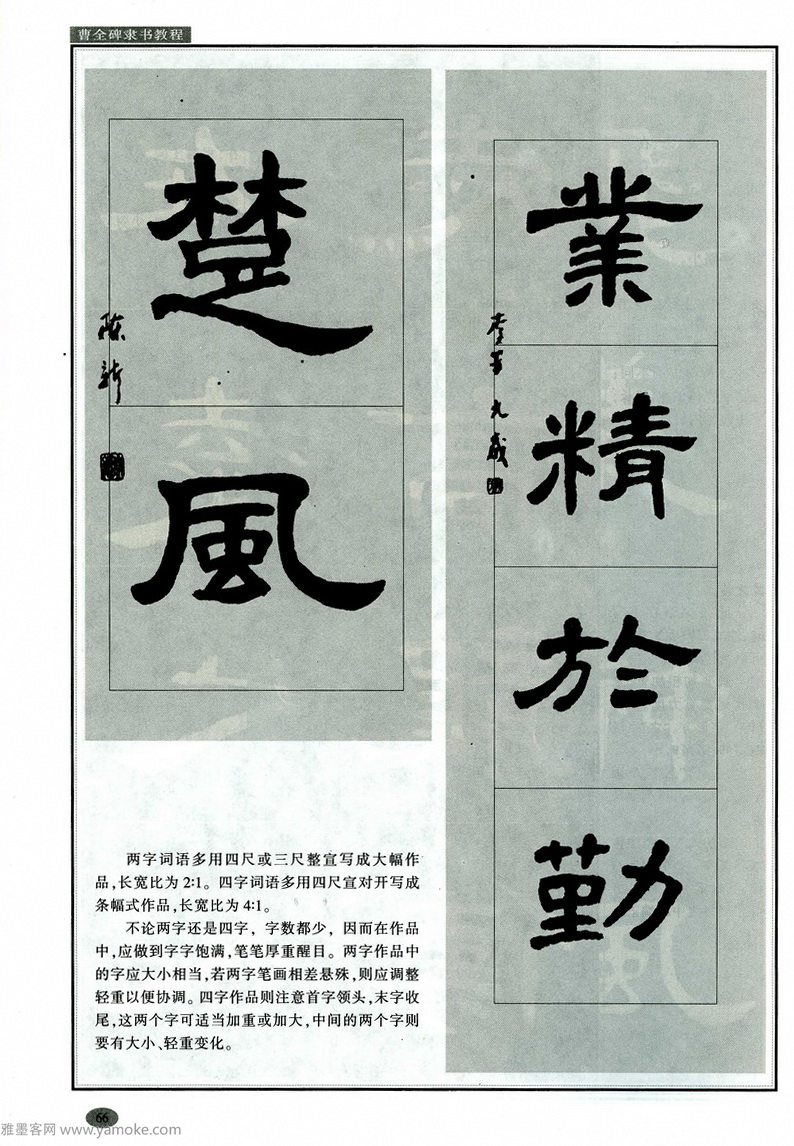 曹全碑隶书教程
楚
風
陈新
業
精
於
勤
两字词语多用四尺或三尺整宣写成大幅作
品,长宽比为 2:1。四字词语多用四尺宣对开写成
条幅式作品,长宽比为 4:1。
不论两字还是四字，字数都少，因而在作品
中,应做到字字饱满,笔笔厚重醒目。两字作品中
的字应大小相当,若两字笔画相差悬殊,则应调整
轻重以便协调。四字作品则注意首字领头,末字收
尾,这两个字可适当加重或加大,中间的两个字则
要有大小、轻重变化。
66
雅墨客网 www.yamoke.com